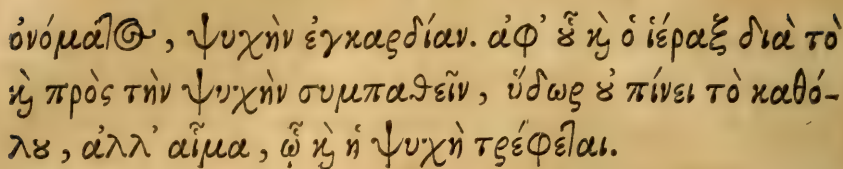 ὀνόμαϊος, ψυχὴν ἐγκαρδίαν. ἀφ' ȣ̃ ϗ̀ ὁ ἱέραξ διὰ τὸ
ϗ̀ πρὸς τὴν ψυχὴν συμπαθεῖν, ὕδωρ ȣ̓ πίνει τὸ καθό-
λȣ, ἀλλ' αἷμα, ᾧ ϗ̀ ἡ ψυχὴ τρέφεται.